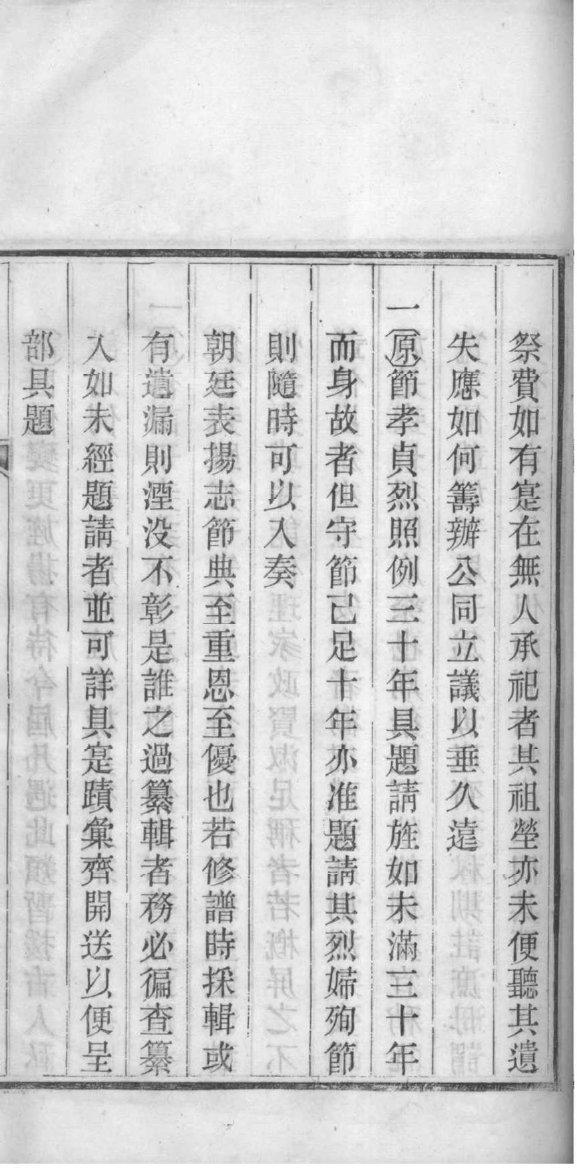 祭費如有寔在無人承祀者其祖塋亦未便聽其遺
失應如何籌辦公同立議以垂久遠
一原節孝貞烈照例三十年具題請旌如未滿三十年
而身故者但守節已足十年亦准題請其烈婦殉節
則隨時可以入奏
朝廷表揚志節典至重恩至優也若修譜時採輯或
有遺漏則湮没不彰是誰之過纂輯者務必徧查纂
入如未經題請者並可詳具寔蹟彙齊開送以便呈
部具題